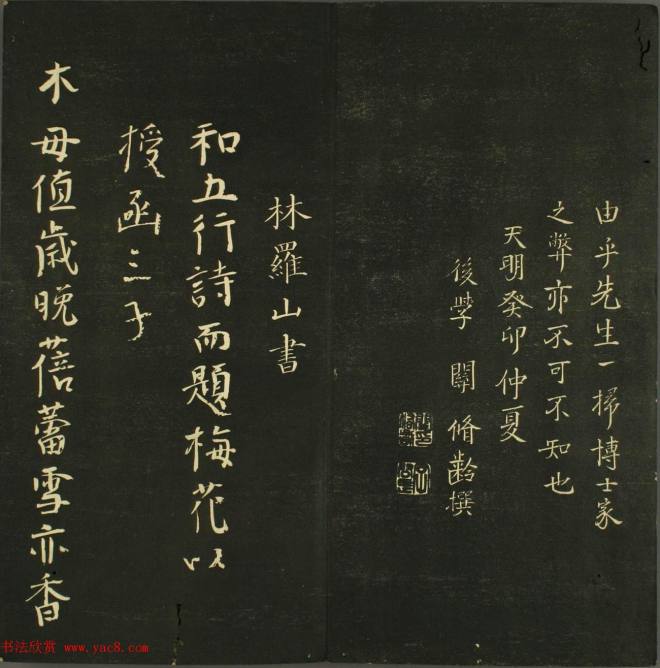 由乎先生一掃博士家
之弊亦不可不知也
天明癸卯仲夏
後學 關 脩齡撰
林羅山書
和五行詩而題梅花以
授函三子
木母值歲晚蓓蕾雪亦香
书法欣赏 www.yac8.com